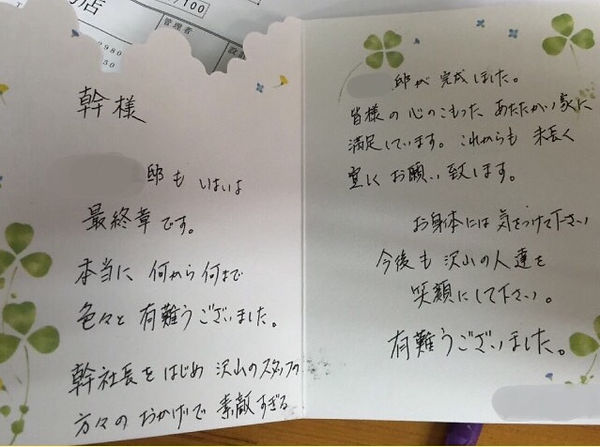 /100
管理者
設
980
50
幹様
邸も いよいよ
最終章です。
本当に 何から何まで
色々と 有難うございました。
幹社長をはじめ 沢山のスタッフの
方々の おかげで 素敵すぎる
邸が 完成しました。
皆様の 心のこもった あたたかい家に
満足しています。これからも 末長く
宜しく お願い致します。
お身体には 気をつけて下さい
今後も 沢山の人達を
笑顔にして下さい。
有難うございました。